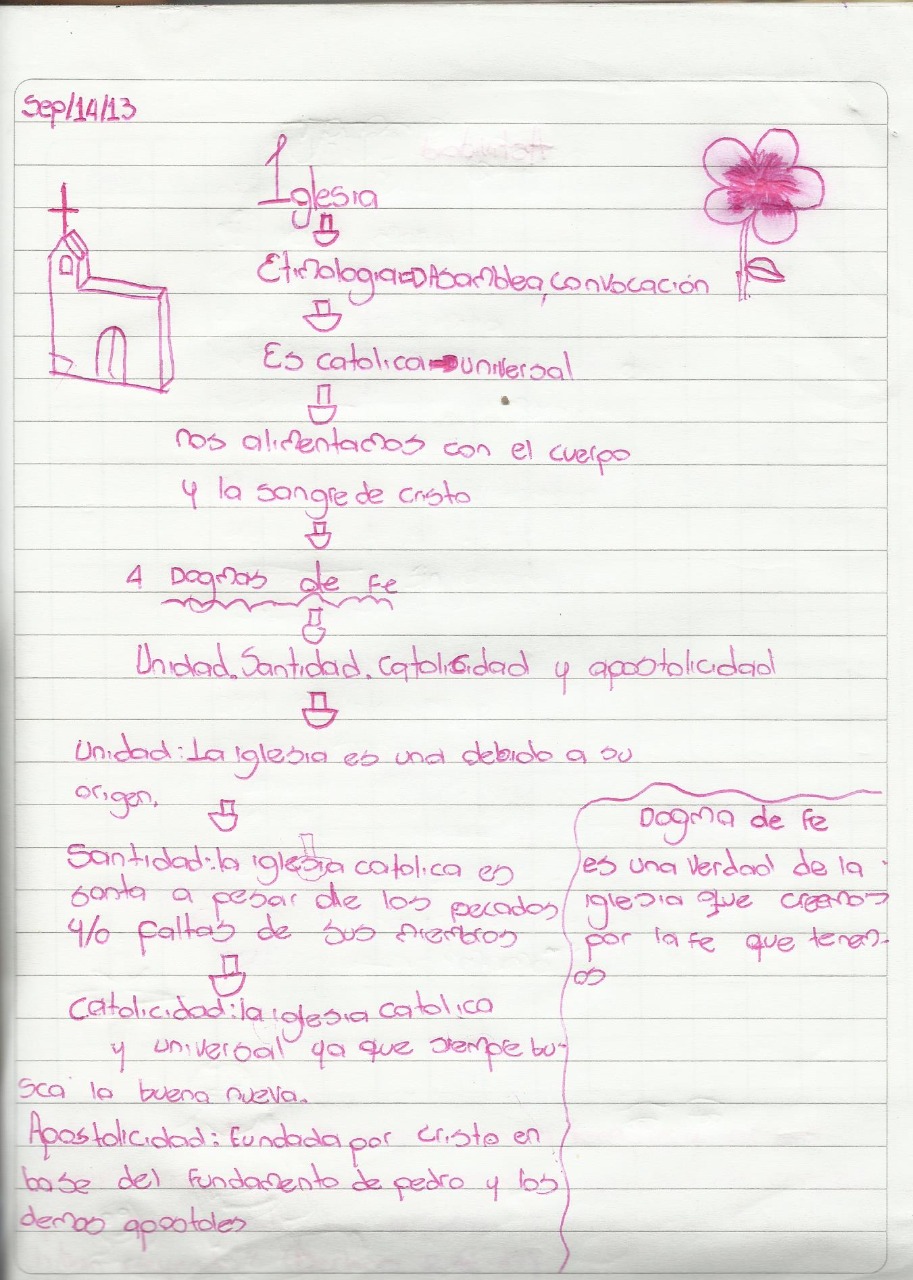 Sep/14/13
Iglesia
Etimologia=DAsamblea, convocación
Es catolica universal
nos alimentamos con el cuerpo
y la sangre de cristo
4 Dogmas de Fe
Unidad, Santidad, Catolicidad y apostolicidad
Unidad: La iglesia es una debido a su
origen.
Santidad: la iglesia catolica es
santa a pesar de los pecados
y/o faltas de sus miembros
Catolicidad: la iglesia catolica
y universal ya que siempre bu-
sca la buena nueva.
Apostolicidad: Fundada por cristo en
base del fundamento de pedro y los
demas apostoles
Dogma de Fe
es una verdad de la
iglesia que creemos
por la fe que tenem-
os